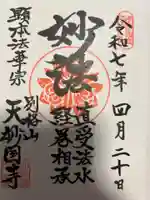 令和七年四月二十日
妙法
直受法水
経巻相承
顕本法華宗
別格山
天妙国寺